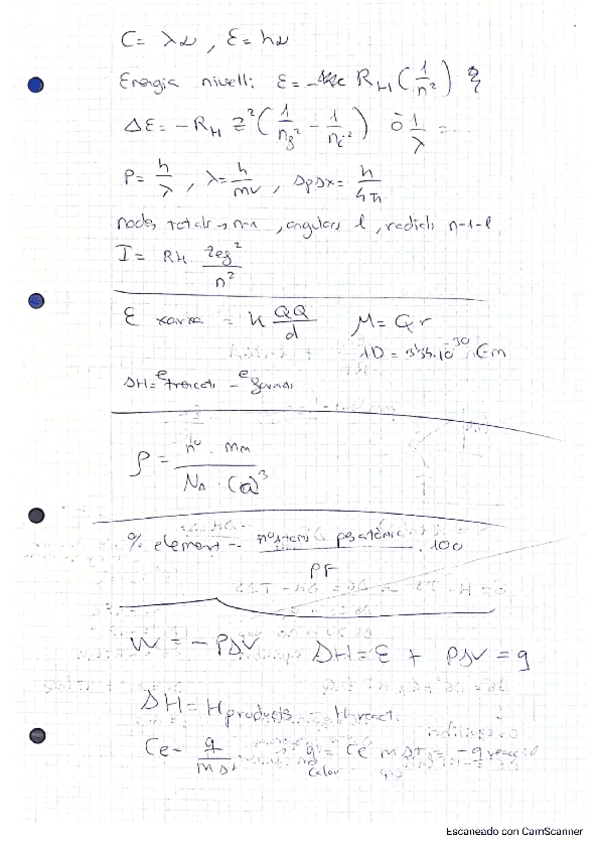 C = λν , E = hν
Energia nivell: E = - R_H (1/n²)
ΔE = -R_H Z² (1/n_f² - 1/n_i²) ò 1/λ = ...
P = h/λ , λ = h/mv , ΔpΔx = h/4π
nodes totals → n-1 , angulars l , radials n-1-l
I = R_H Zef²/n²
E xarxa = K QQ/d    M = Q r
1D = 3'34·10^-30 C·m
ΔH = e trencats - e formats
ρ = nº · mm / N_A · (a)³
% element = nº àtoms · pes atòmic / PF · 100
W = -PΔV    ΔH = E + PΔV = q
ΔH = H products - H react.
Ce = q / m Δt    q calor = Ce m Δt = -q reacció
Escaneado con CamScanner